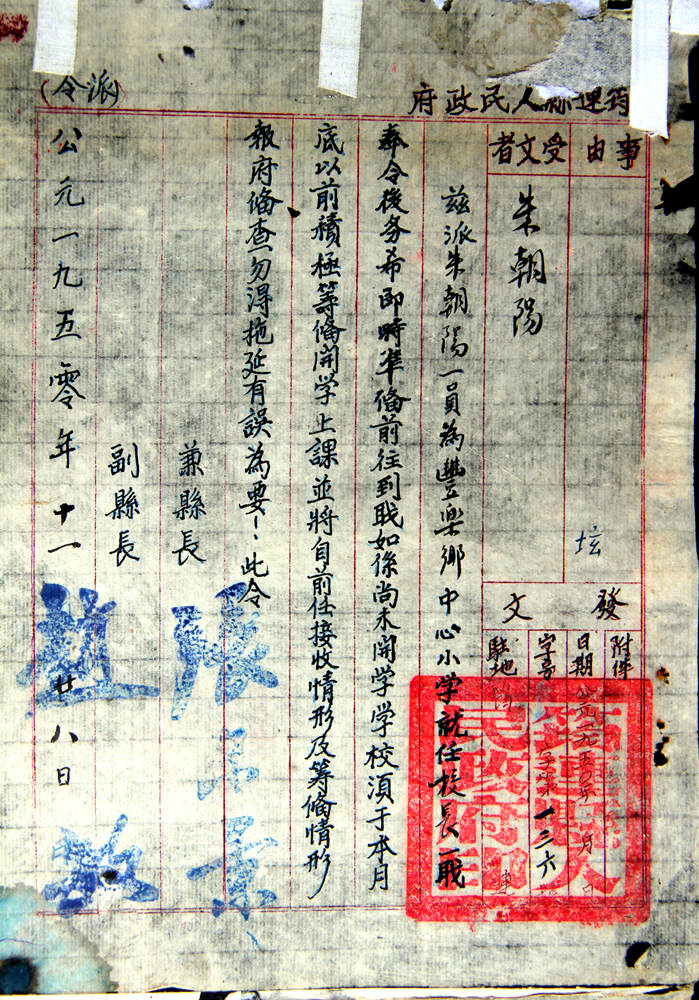 筠連縣人民政府
(派令)
事由
受文者
朱朝陽
發文
附件
日期 公元一九五〇年 月 日
字號 字第一三六
駐地
茲派朱朝陽一員為豐樂鄉中心小学就任校長一戢
奉令後务希即時準備前往到戢如係尚未開学学校須于本月
底以前積極筹備開学上課並將自前任接收情形及筹備情形
報府備查勿得拖延有誤為要！此令
兼縣長 張
副縣長 趙
公元一九五零年十一 廿八日
筠連縣人民政府印